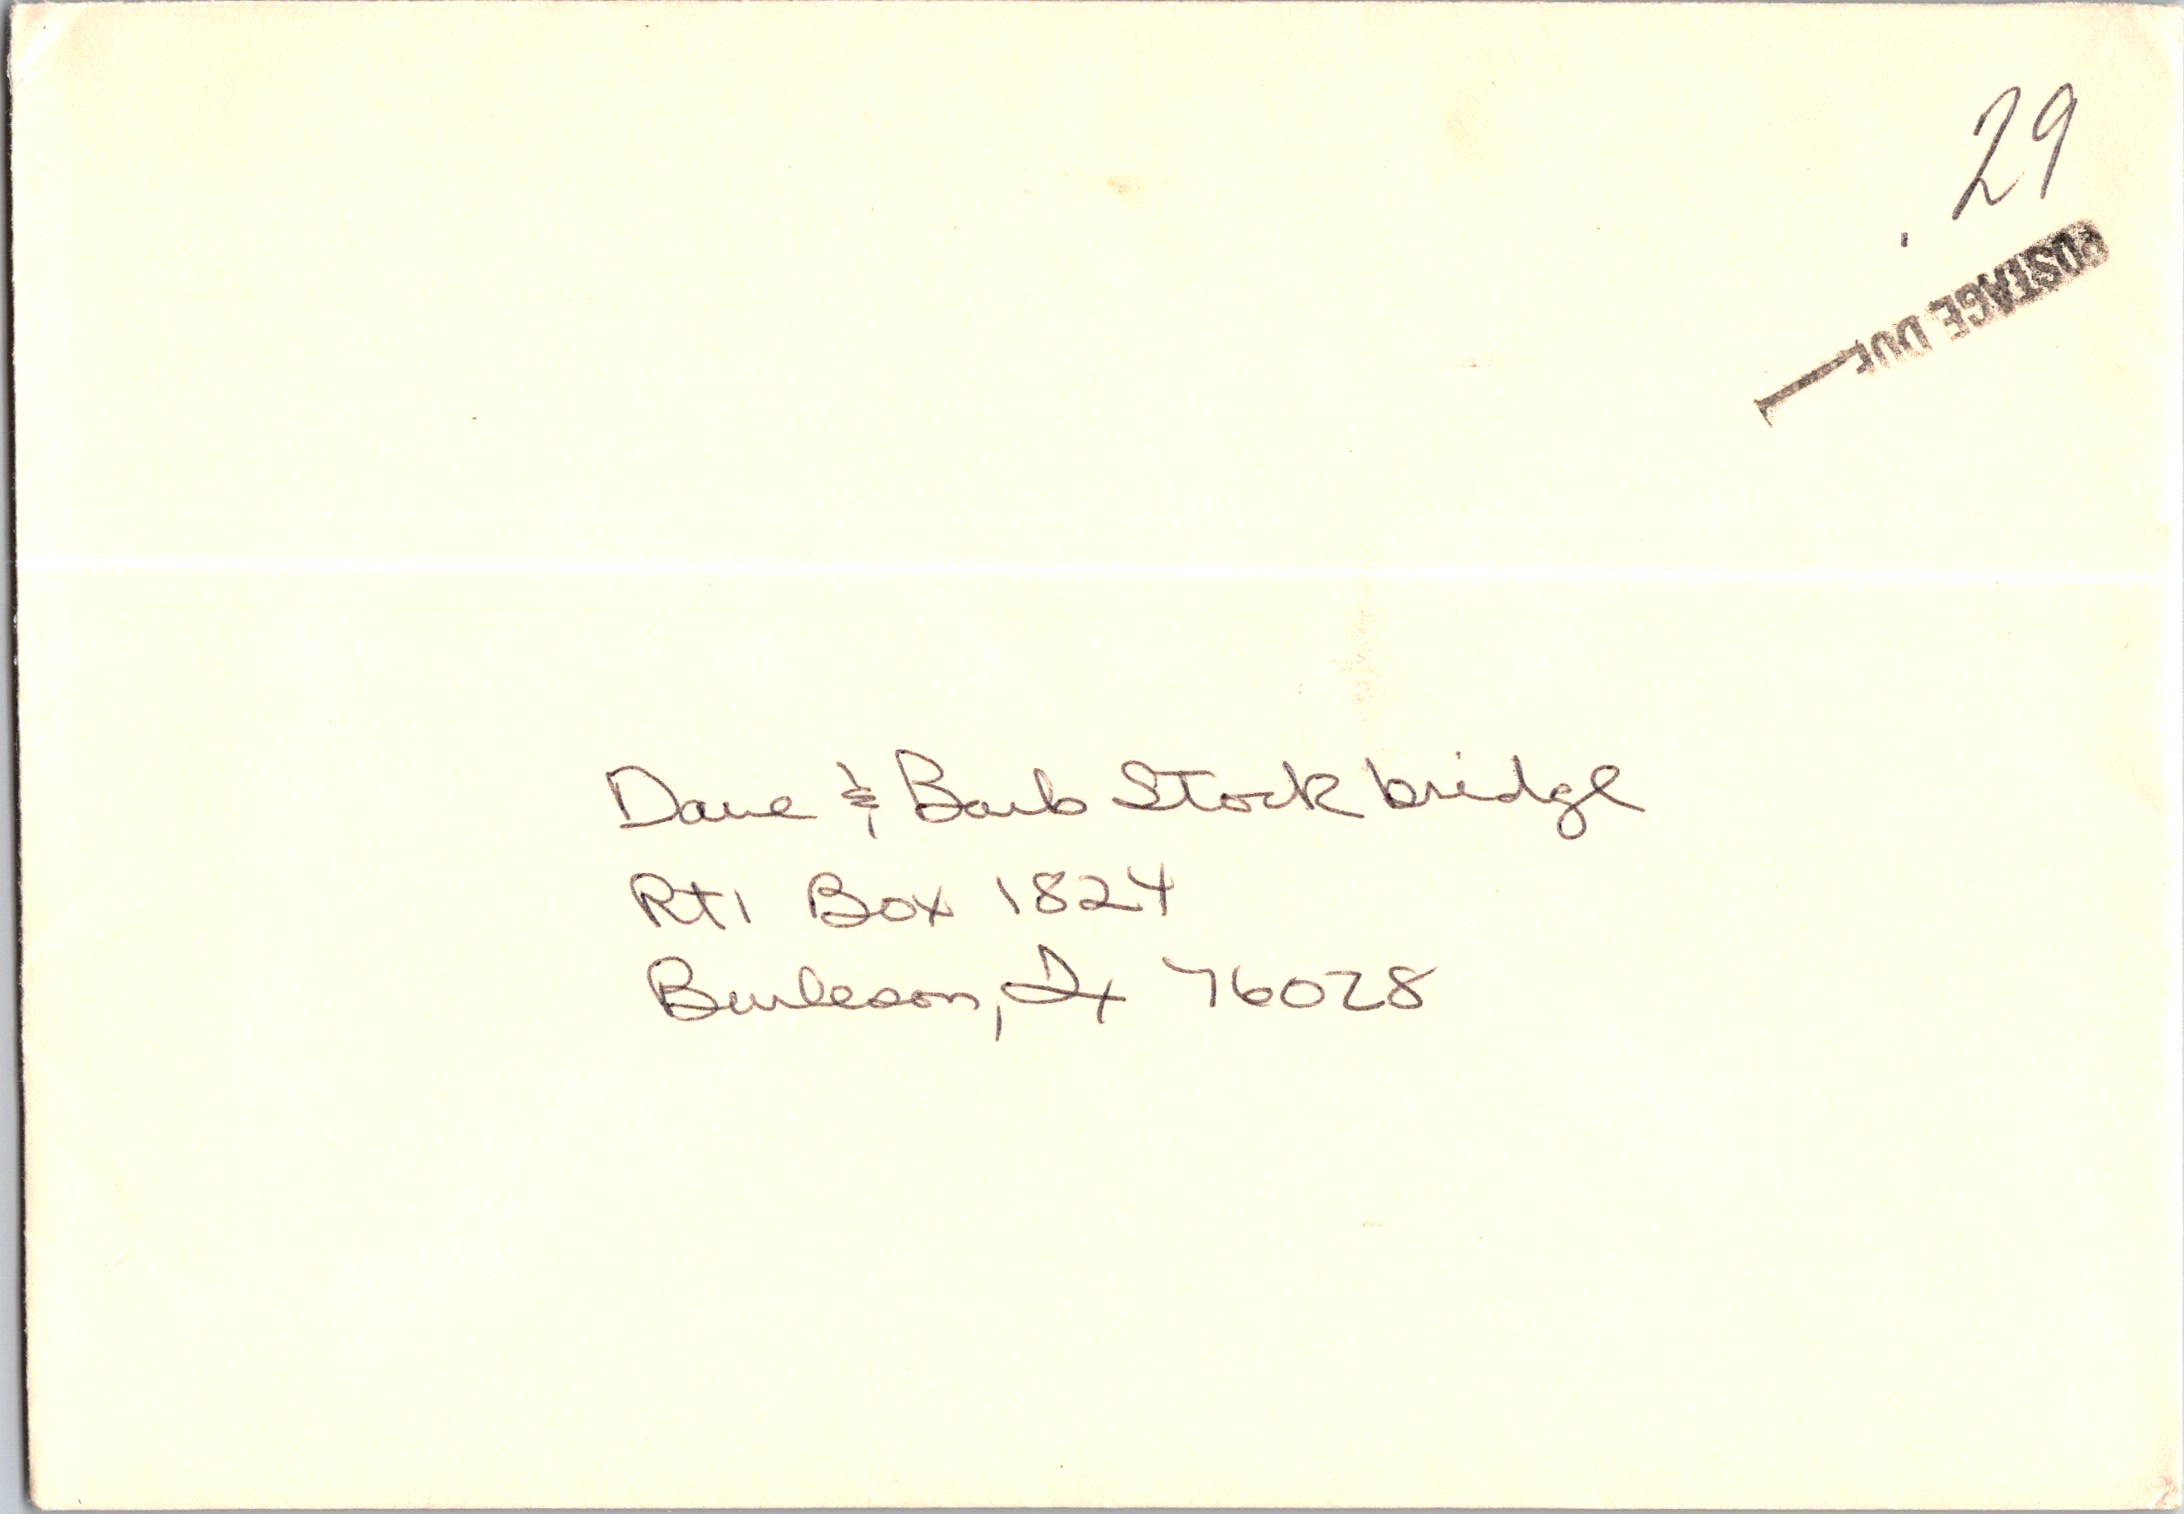 .29
POSTAGE DUE
Dave & Barb Stockbridge
Rt1 Box 1824
Burleson, Tx 76028